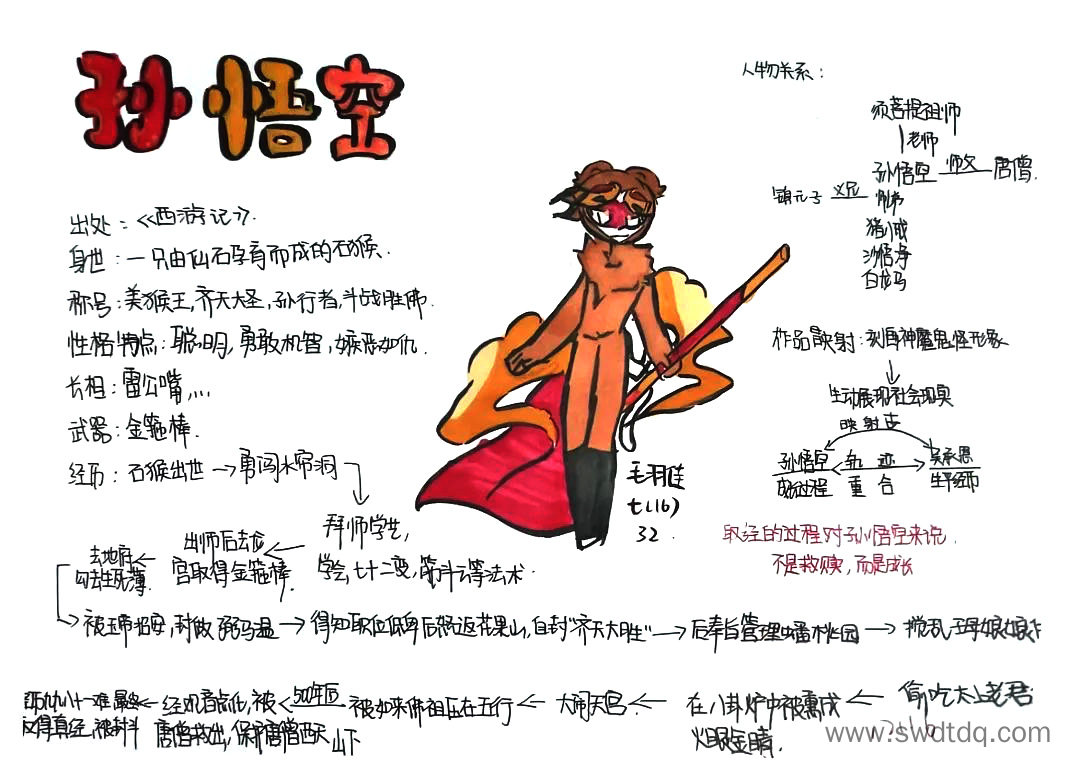 孙悟空
出处：《西游记》.
身世：一只由仙石孕育而成的石猴.
称号：美猴王,齐天大圣,孙行者,斗战胜佛
性格特点：聪明,勇敢机智,嫉恶如仇.
长相：雷公嘴,...
武器：金箍棒.
经历：石猴出世→勇闯水帘洞
拜师学生,
学会,七十二变,筋斗云等法术.
出师后去龙
宫取得金箍棒.
去地府
勾去生死薄.
被玉帝招安,封做弼马温→得知职位低卑后怒返花果山,自封"齐天大胜"→后奉旨管理蟠桃园→搅乱王母娘娘
偷吃太上老君
在八卦炉中被熏成
火眼金睛.
大闹天宫
被如来佛祖压在五行
山下
500年后
经观音点化,被
唐僧救出,保护唐僧西天
八十一难最终
取得真经,被封斗
人物关系：
须菩提祖师
老师
孙悟空 师父 唐僧.
镇元子 义兄
师弟
猪八戒
沙悟净
白龙马
作品映射：利用神魔鬼怪形象
生动展现社会现实
映射世
孙悟空 轨迹 吴承恩
成长过程 重合 生平经历
取经的过程对孙悟空来说
不是救赎,而是成长
七(16)
32.
www.swdtdq.com